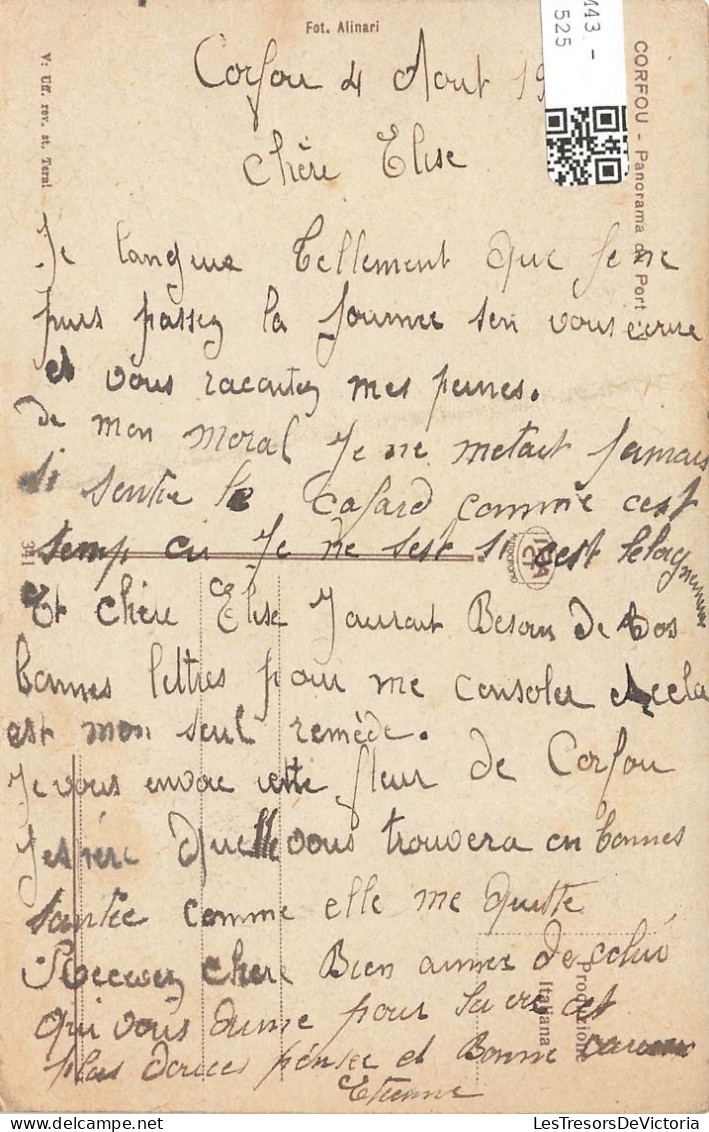 Fot. Alinari
M43 -
525
CORFOU - Panorama du Port
V: Uff. rev. st. Terni
Corfou 4 Aout 19
Chère Elise
Je langui tellement que Je ne
puis passez la Journee sen vous ecrire
et vous racontez mes peines.
de mon moral Je ne metait Jamais
si sentie le Cafard comme cest
temp ci Je ne sest si cest lelognement
341
Et chère Elise Jaurait Besoin de vos
bonnes lettres pour me consoler cela
est mon seul remède.
Je vous envoie cette fleur de Corfou
Jespére quelle vous trouvera en bonnes
santée comme elle me quitte
Recevez chere Bien aimee de celui
qui vous aime pour la vie et
plus douces pensée et Bonne
Etienne
Produzione
Italiana
LesTresorsDeVictoria.delcampe.net